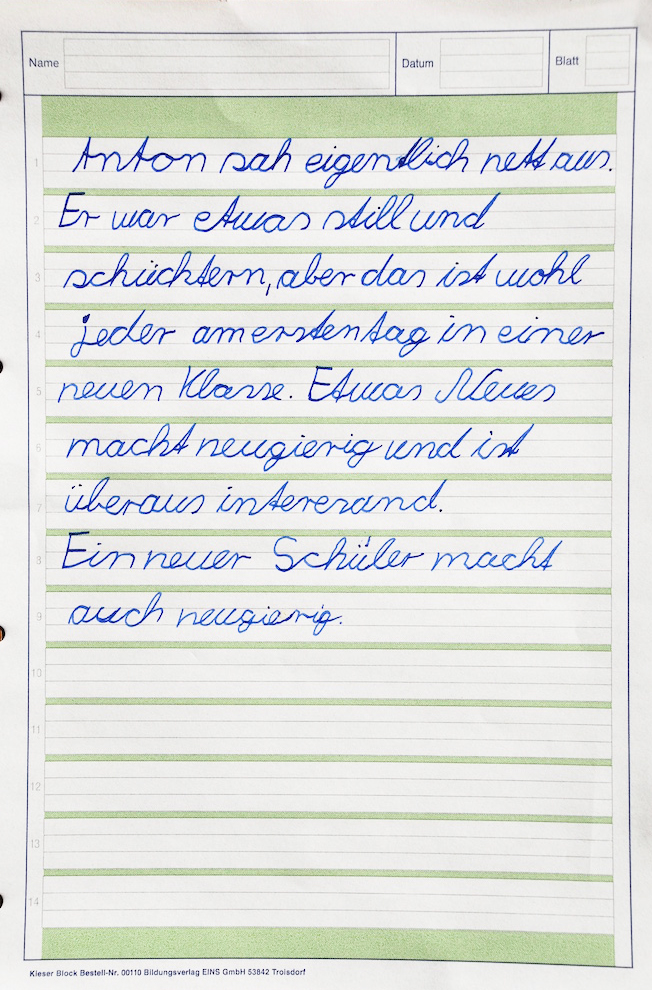 Name Datum Blatt
1 Anton sah eigentlich nett aus.
2 Er war etwas still und
3 schücktern, aber das ist wohl
4 jeder am ersten tag in einer
5 neuen Klasse. Etwas Neues
6 macht neugierig und ist
7 überaus interesand.
8 Ein neuer Schüler macht
9 auch neugierig.
10
11
12
13
14
Kieser Block Bestell-Nr. 00110 Bildungsverlag EINS GmbH 53842 Troisdorf